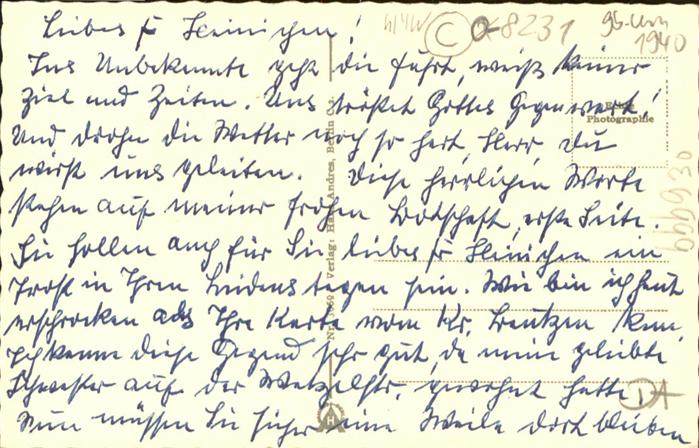 Liebes Frl. Heinichen!
Ins Unbekannte geht die Fahrt, weiß keiner
Ziel und Zeiten. Uns tröstet Gottes Gegenwart!
Und drohn die Wetter noch so hart, Herr, du
wirst uns geleiten. Diese herrlichen Worte
stehen auf meiner frohen Botschaft, erste Seite.
Sie sollen auch für Sie liebes Frl. Heinichen ein
Trost in Ihren Leidenstagen sein. Wie bin ich heut
erschrocken als Ihre Karte vom Kr. Bautzen kam,
ich kenne diese Gegend sehr gut, da meine geliebte
Schwester auf der Wetzelstr. gewohnt hatte.
Nun müssen Sie sicher eine Weile dort bleiben
Echte
Photographie
Verlag: Hans Andres, Berlin C
C
8231
1940
DA